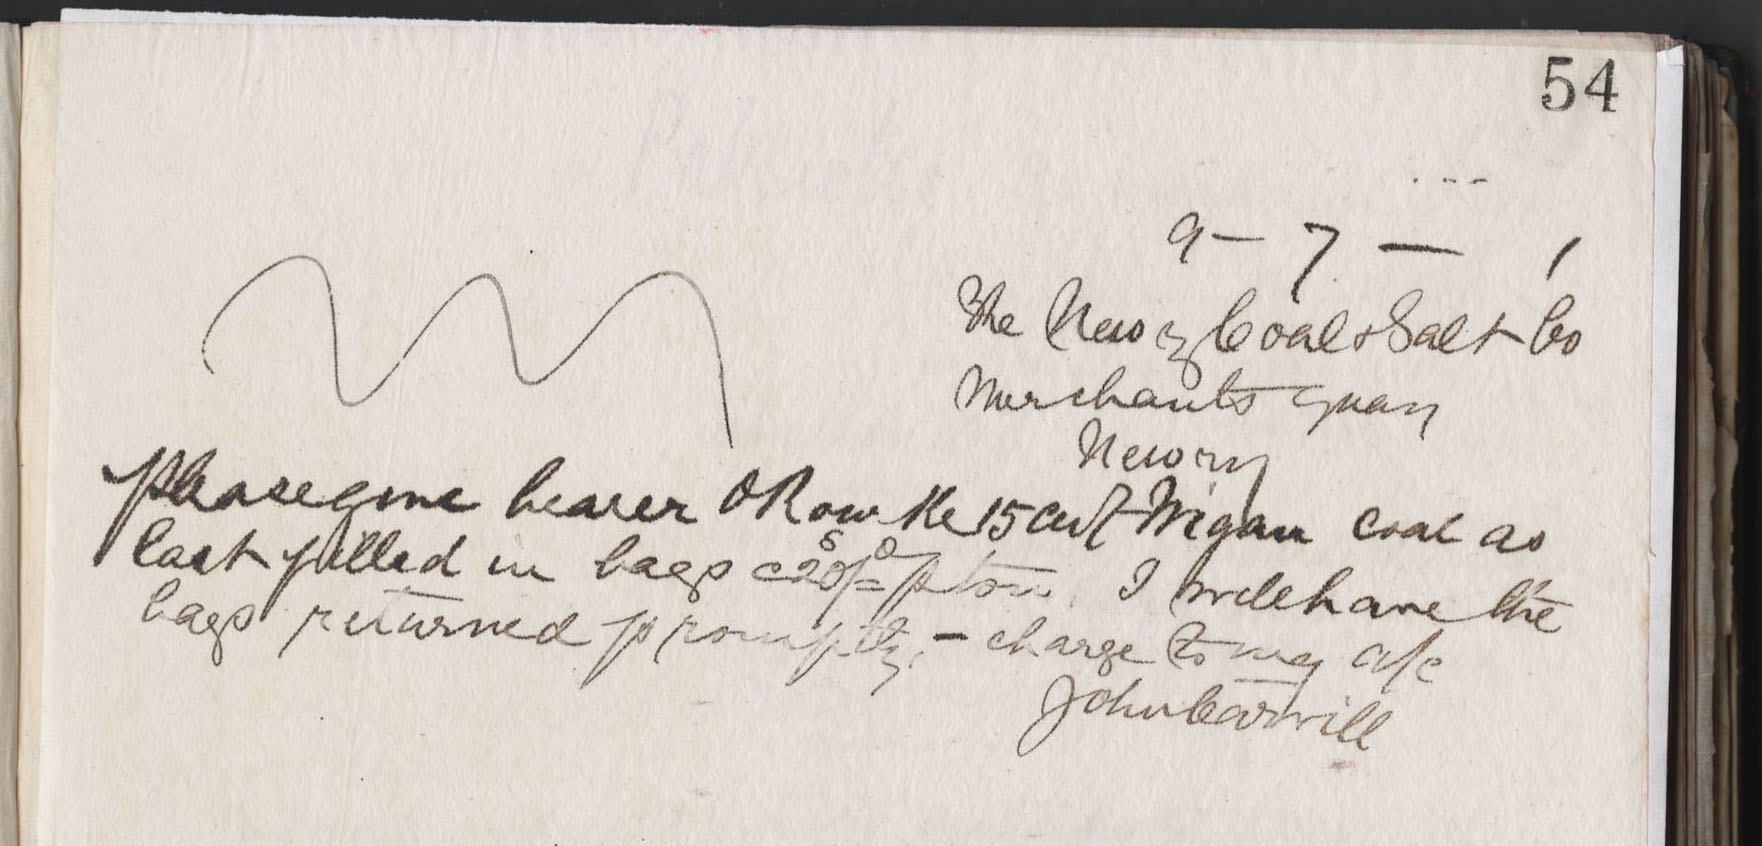 54
9 - 7 - 1
The Newry Coal & Salt Co
Merchants Quay
Newry
Please give bearer O Rourke 15 cwt Wigan coal as
last filled in bags @ 20s/=d p ton. I will have the
bags returned promptly, - charge to my a/c
John Carvill